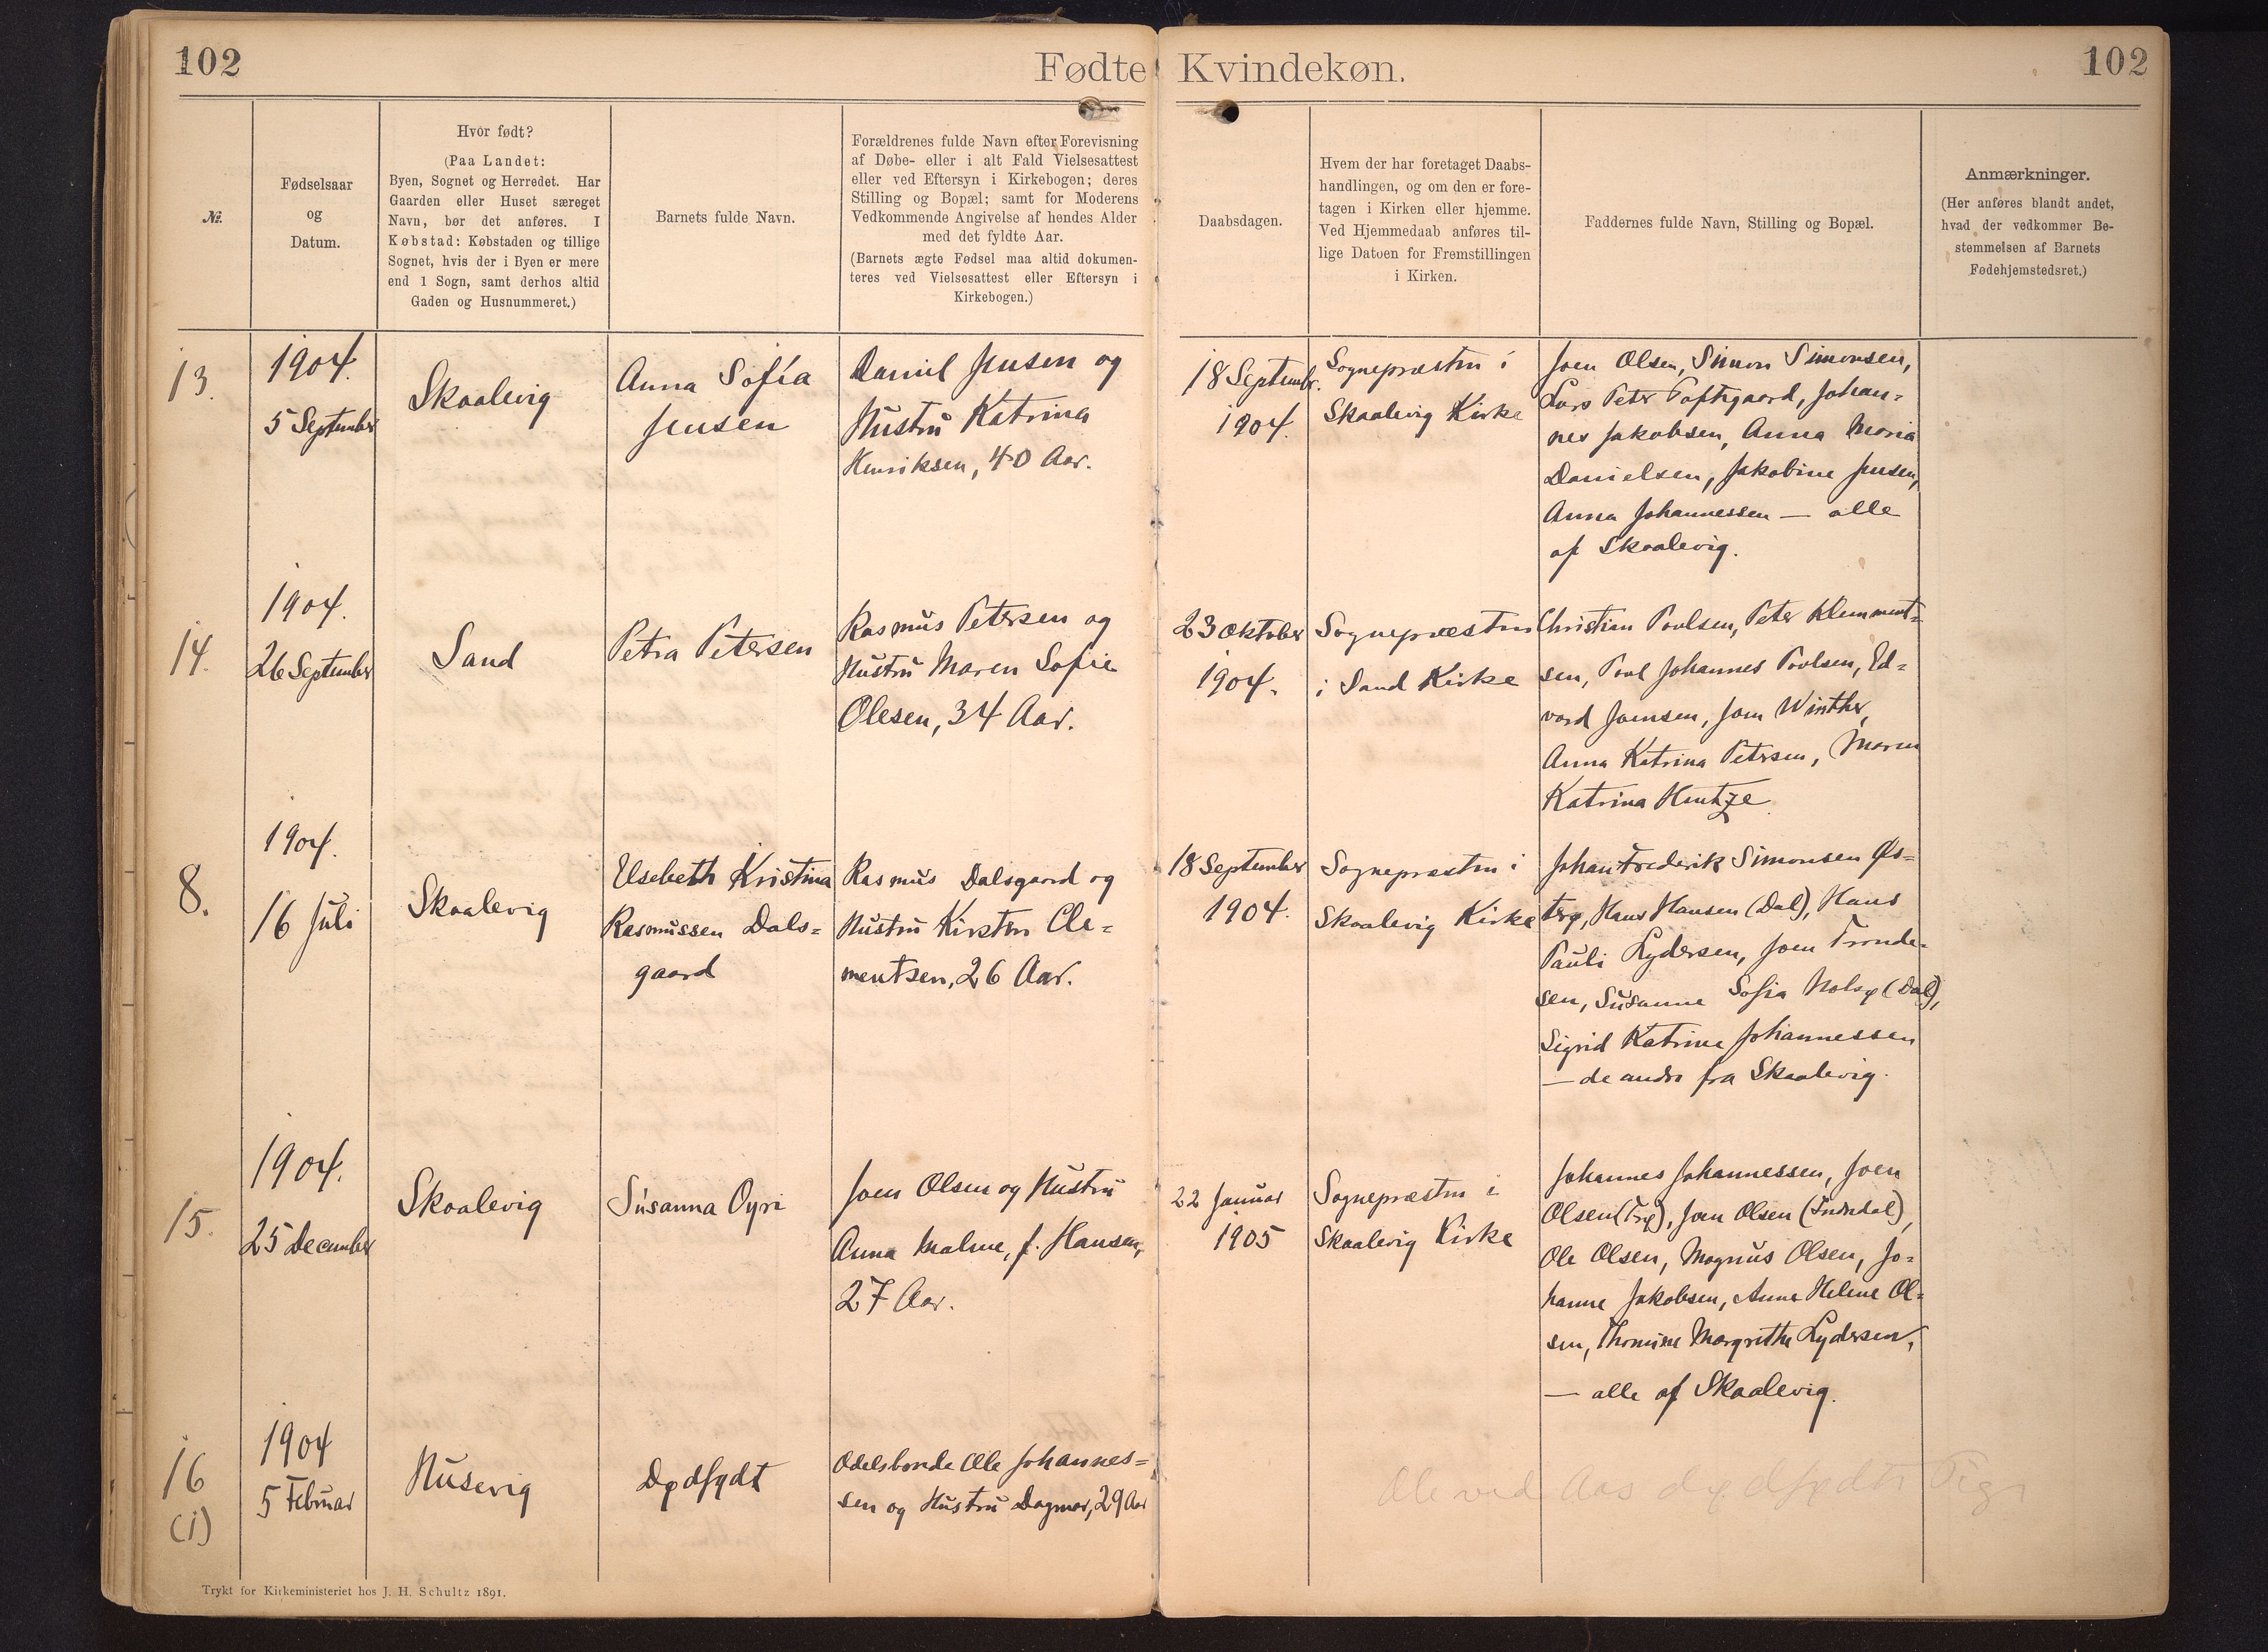 102
Fødte Kvindekøn.
102
№.
Fødselsaar
og
Datum.
Hvor født?
(Paa Landet:
Byen, Sognet og Herredet. Har
Gaarden eller Huset særeget
Navn, bør det anføres. I
Købstad: Købstaden og tillige
Sognet, hvis der i Byen er mere
end 1 Sogn, samt derhos altid
Gaden og Husnummeret.)
Barnets fulde Navn.
Forældrenes fulde Navn efter Forevisning
af Døbe- eller i alt Fald Vielsesattest
eller ved Eftersyn i Kirkebogen; deres
Stilling og Bopæl; samt for Moderens
Vedkommende Angivelse af hendes Alder
med det fyldte Aar.
(Barnets ægte Fødsel maa altid dokumen-
teres ved Vielsesattest eller Eftersyn i
Kirkebogen.)
Daabsdagen.
Hvem der har foretaget Daabs-
handlingen, og om den er fore-
tagen i Kirken eller hjemme.
Ved Hjemmedaab anføres til-
lige Datoen for Fremstillingen
i Kirken.
Faddernes fulde Navn, Stilling og Bopæl.
Anmærkninger.
(Her anføres blandt andet,
hvad der vedkommer Be-
stemmelsen af Barnets
Fødehjemstedsret.)
13.
1904.
5 September
Skaalevig
Anna Sofía
Jensen
Daniel Jensen og
Hustru Katrina
Henriksen, 40 Aar.
18 Septembr.
1904.
Sognepræsten i
Skaalevig Kirke
Joen Olsen, Simon Simonsen,
Lars Peter Toftegaard, Johan=
nes Jakobsen, Anna Maria
Danielsen, Jakobine Jensen,
Anna Johannessen — alle
af Skaalevig.
14.
1904.
26 September
Sand
Petra Petersen
Rasmus Petersen og
Hustru Maren Sofie
Olesen, 34 Aar.
23 Oktober
1904.
Sognepræsten
i Sand Kirke
Christian Poulsen, Peter Klemment=
sen, Poul Johannes Poulsen, Ed=
vard Joensen, Joen Winther,
Anna Katrina Petersen, Maren
Katrina Hentze
8.
1904.
16 Juli
Skaalevig
Elsebeth Kristina
Rasmussen Dals=
gaard
Rasmus Dalsgaard og
Hustru Kirsten Cle=
mentsen, 26 Aar.
18 September
1904.
Sognepræsten i
Skaalevig Kirke
Johan Frederik Simonsen Øs=
terø, Hans Hansen (Dal), Hans
Pauli Lydersen, Joen Tronde=
sen, Susanne Sofia Nolsø (Dal),
Sigrid Katrine Johannessen
— de andre fra Skaalevig.
15.
1904.
25 December
Skaalevig
Súsanna Oyri
Joen Olsen og Hustru
Anna Malene, f. Hansen,
27 Aar.
22 Januar
1905
Sognepræsten i
Skaalevig Kirke
Johannes Johannessen, Joen
Olsen, Joen Olsen (Inndal),
Ole Olsen, Magnus Olsen, Jo=
hanne Jakobsen, Anne Helene Ol=
sen, Thomine Margrethe Lydersen,
— alle af Skaalevig.
16
(1)
1904
5 Februar
Husevig
Dødfødt
Odelsbonde Ole Johannes=
sen og Hustru Dagmar, 29 Aar
Ole ved Aas dødfødte Pige
Trykt for Kirkeministeriet hos J. H. Schultz 1891.